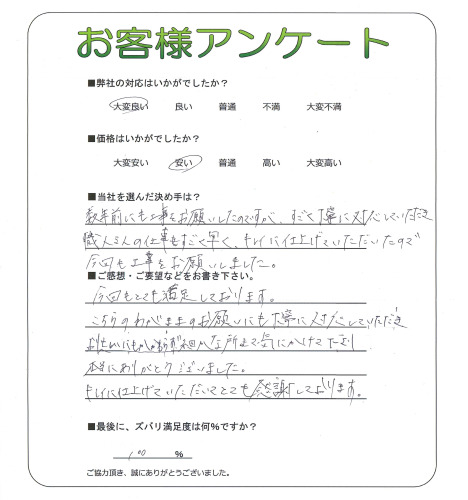 お客様アンケート
■弊社の対応はいかがでしたか？
大変良い 良い 普通 不満 大変不満
■価格はいかがでしたか？
大変安い 安い 普通 高い 大変高い
■当社を選んだ決め手は？
数年前にも工事をお願いしたのですが、すごく丁寧に対応していただき
職人さんの仕事もすごく早く、キレイに仕上げていただいたので
今回も工事をお願いしました。
■ご感想・ご要望などをお書き下さい。
今回もとても満足しております。
こちらのわがままのお願いにも丁寧に対応していただき
にもかかわらず細かな所まで気にかけて下さり
本当にありがとうございました。
キレイに仕上げていただいてとても感謝しております。
■最後に、ズバリ満足度は何%ですか？
100 %
ご協力頂き、誠にありがとうございました。